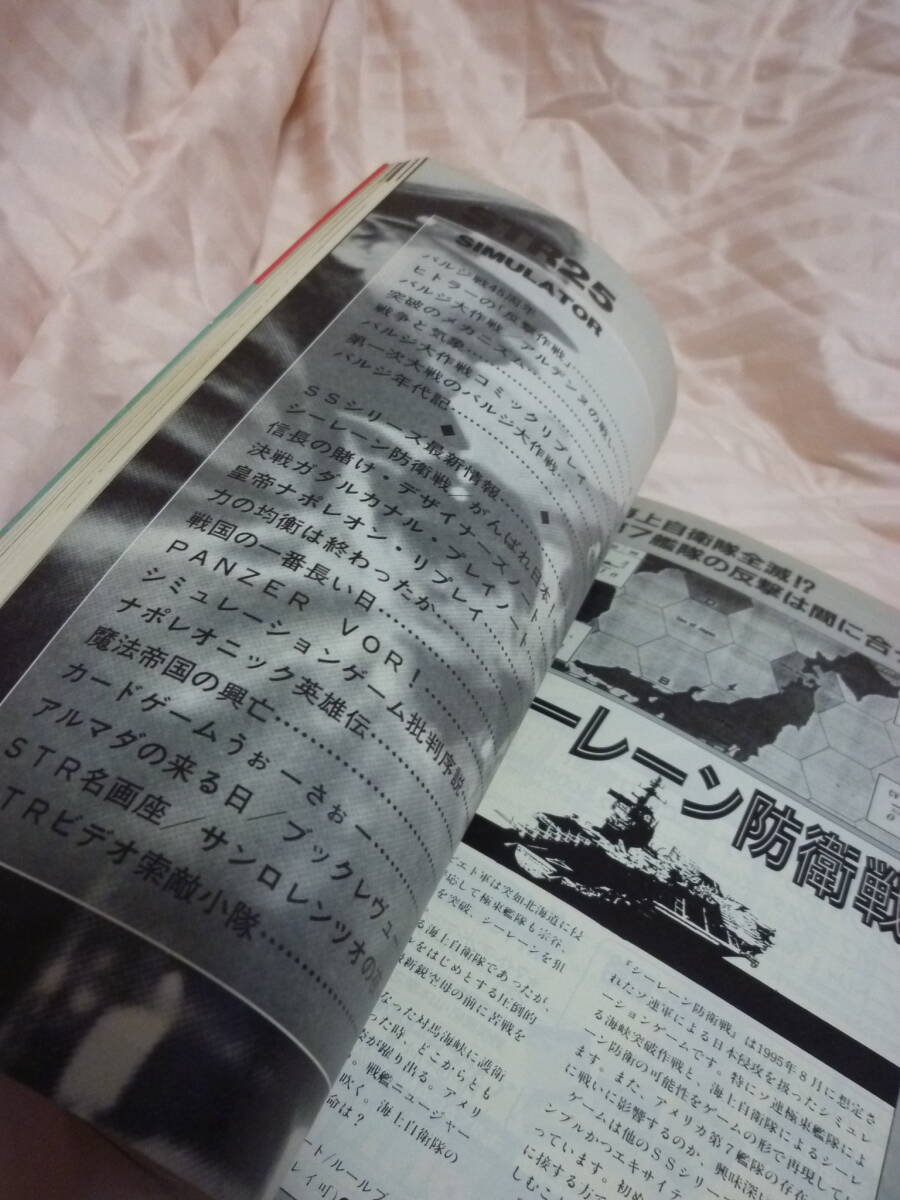 TR25
SIMULATOR
バルジ戦45周年
ヒトラーの「反撃作戦」
バルジ大作戦「アルデンヌの戦い
突破のメカニズム
戦争と気象
バルジ大作戦コミックリプレイ
第一次大戦のバルジ大作戦
バルジ年代記
◆
SSシリーズ最新情報
シーレーン防衛戦/がんばれ日本!
信長の賭け・デザイナースノート
決戦ガダルカナル・プレイノート
皇帝ナポレオン・リプレイ
力の均衡は終わったか
戦国の一番長い日
PANZER VOR!
シミュレーションゲーム批判序説
ナポレオニック英雄伝
魔法帝国の興亡
カードゲームうぉーさぉー
アルマダの来る日/ブックレヴュー
STR名画座/サンロレンツオの
TRビデオ索敵小隊
上自衛隊全滅!?
7艦隊の反撃は間に合
ーレーン防衛戦
エト軍は突如北海道に侵
応して極東艦隊も宗谷、
を突破、シーレーンを狙
る海上自衛隊であったが、
ルをはじめとする圧倒的
最新鋭空母の前に苦戦を
なった対馬海峡に護衛
った時、どこからとも
姿が躍り出る。アメリ
。戦艦ニュージャー
吹く。海上自衛隊の
命は?
ト/ルールブ
レイ可)
『シーレーン防衛戦』は1995年8月に想定さ
れたソ連軍による日本侵攻を扱ったシミュレ
ーションゲームです。特にソ連極東艦隊によ
る海峡突破作戦と、海上自衛隊によるシーレ
ーン防衛の可能性をゲームの形で再現して
ます。また、アメリカ第7艦隊の存在
戦いに影響するのか、興味深
ゲームは他のSSシリー
ンプルかつエキサイ
っています。初め
に接する方で
しむこ